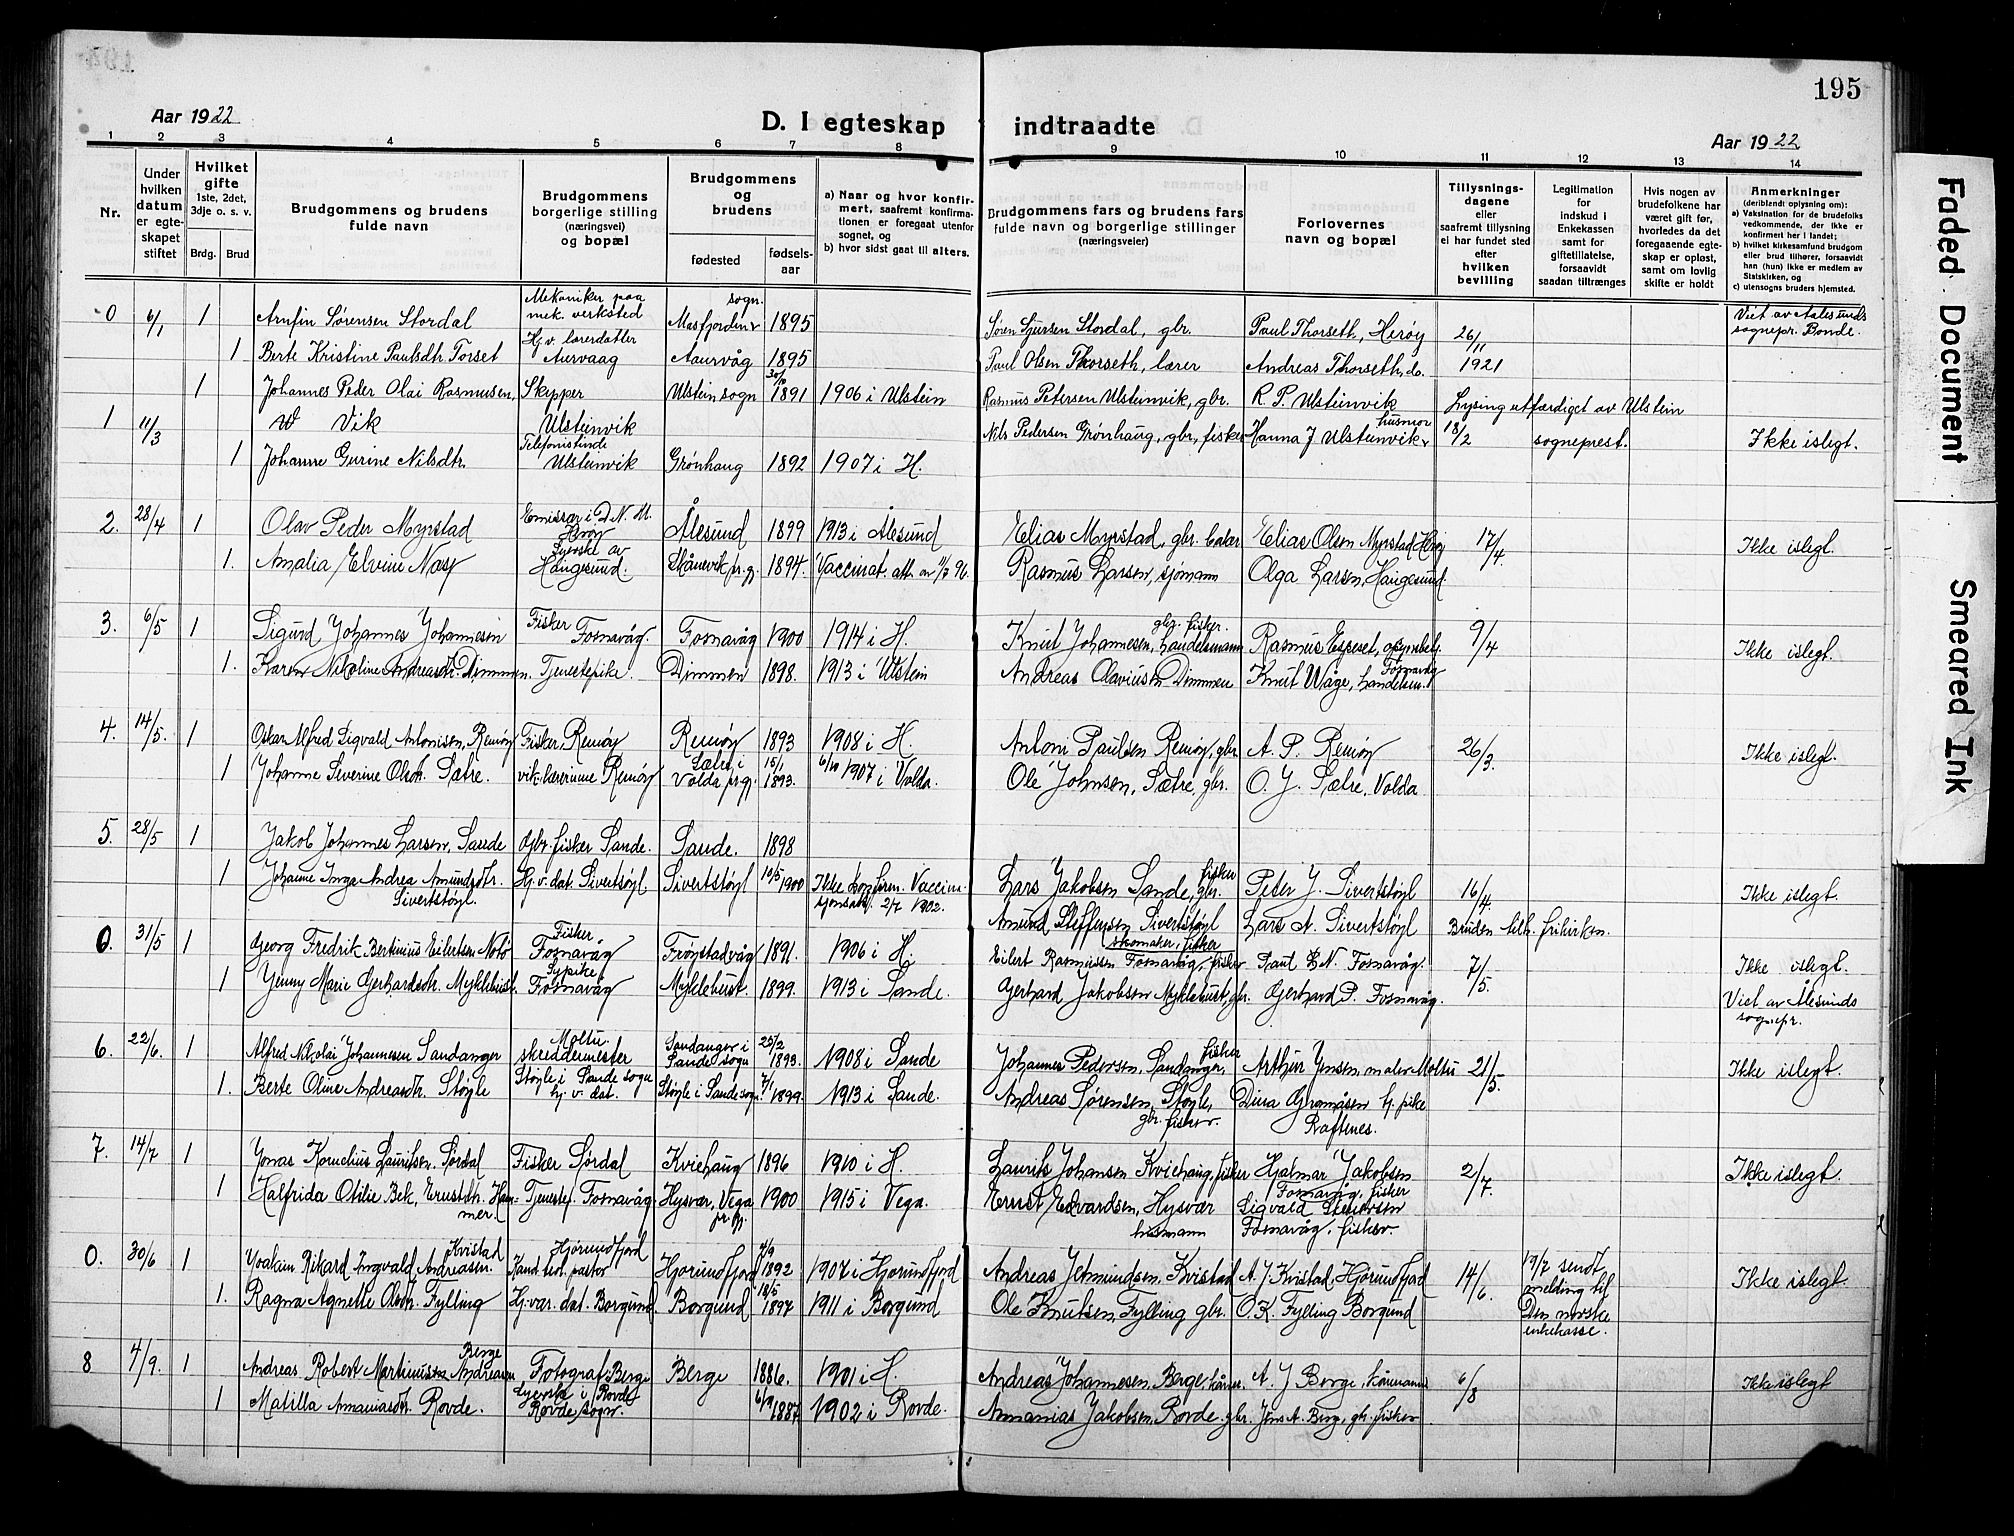 195
Aar 1922
D. I egteskap indtraadte
Aar 1922
1 2 3 4 5 6 7 8 9 10 11 12 13 14
Nr.
Under hvilken datum er egteskapet stiftet
Hvilket gifte 1ste, 2det, 3dje o. s. v.
Brdg. Brud
Brudgommens og brudens fulde navn
Brudgommens borgerlige stilling (næringsvei) og bopæl
Brudgommens og brudens
fødested
fødsels-aar
a) Naar og hvor konfirmert, saafremt konfirmationen er foregaat utenfor sognet, og
b) hvor sidst gaat til alters.
Brudgommens fars og brudens fars fulde navn og borgerlige stillinger (næringsveier)
Forlovernes navn og bopæl
Tillysnings-dagene eller saafremt tillysning ei har fundet sted efter hvilken bevilling
Legitimation for indskud i Enkekassen samt for giftetillatelse, forsaavidt saadan tiltrænges
Hvis nogen av brudefolkene har været gift før, hvorledes da det foregaaende egteskap er opløst, samt om lovlig skifte er holdt
Anmerkninger (deriblandt oplysning om):
a) Vaksination for de brudefolks vedkommende, der ikke er konfirmert her i landet;
b) hvilket kirkesamfund brudgom eller brud tilhører, forsaavidt han (hun) ikke er medlem av Statskirken, og
c) utensogns bruders hjemsted.
0 6/1 1 Arnfin Sørensen Stordal Mekaniker paa mek. verksted Masfjorden sogn. 1895 Søren Sjursen Stordal, gbr. Paul Thorseth, Herøy 26/11 Viet av Aalesunds sognepr. Bonde.
1 Berte Kristine Paulsdtr. Torset Hj.v. lærerdatter Aurvaag Aaurvåg 1895 Paul Olsen Thorseth, lærer Andreas Thorseth, do. 1921
1 11/3 1 Johannes Peder Olai Rasmussen, Vik Skipper Ulsteinvik Ulstein sogn 30/10 1891 1906 i Ulstein Rasmus Petersen Ulsteinvik, gbr. R. P. Ulsteinvik Lysing utfærdiget av Ulstein
1 Johanne Gurine Nilsdtr. Telefonistinde Ulsteinvik Grønhaug 1892 1907 i H. Nils Pedersen Grønhaug, gbr, fisker Hanna J Ulsteinvik husmor 18/2 sogneprest. Ikke i slegt.
2. 28/4 1 Olav Peder Myrstad Emissær i D.N.M. Herøy Ålesund 1899 1913 i Ålesund Elias Myrstad, gbr. Elias Olsen Myrstad Herøy 17/4. Ikke i slegt.
1. Amalia Elvine Næs Syerske av Haugesund. Skånevik pr.gj. 1894. Vaccinat. att. av 11/7 96. Rasmus Larsen, sjømann Olga Larsen, Haugesund.
3. 6/5 1 Sigurd Johannes Johannesen Fisker Fosnavåg. Fosnavåg 1900 1914 i H. Knut Johannesen, handelsmann gbr. fisker. Rasmus Espeset, 9/4 Ikke i slegt.
1. Karen Nikoline Andreasdtr. Dimmen. Tjenestepike. Dimmen 1898. 1913 i Ulstein Andreas Olaviusen Dimmen Knut Våge, handelsm. Fosnavåg
4. 14/5. 1 Oskar Alfred Sigvald Antonisen, Remøy Fisker, Remøy Remøy 1893 1908 i H. Anton Paulsen Remøy, gbr. A. P. Remøy 26/3. Ikke i slegt.
1 Johanne Severine Olsdtr. Sætre. vik. lærerinne Remøy Sætre i Volda pr.gj. 15/1 1893. 6/10 1907 i Volda. Ole Johnsen, Sætre, gbr. O. J. Sætre, Volda
5. 28/5 1 Jakob Johannes Larsen, Sande Gbr. fisker Sande. Sande. 1898 Lars Jakobsen Sande, gbr. fisker Peter J. Sivertstøyl 16/4. Ikke i slegt.
1 Johanne Inga Andrea Amundsdtr. Sivertstøyl. Hj.v. dat. Sivertstøyl Sivertstøyl 10/5 1900 Ikke konfirm. Vaccinasjonsatt. 2/7 1902. Amund Steffensen Sivertstøyl Lars A. Sivertstøyl Bruden tilh. frikirken.
0. 31/5 1 Georg Fredrik Bertinius Eilertsen Notø Fisker Fosnavåg Frøystadvåg 1891. 1906 i H. Eilert Rasmussen Fosnavåg, fisker skomaker, fisker Paul L.N. Fosnavåg. 7/5. Ikke i slegt.
1 Jenny Marie Gerhardsdtr. Myklebust. Sypike Fosnavåg Myklebust. 1899. 1913 i Sande. Gerhard Jakobsen Myklebust, gbr. Gerhard P. Fosnavåg. Viet av Ålesunds sognepr.
6. 22/6. 1 Alfred Nikolai Johannesen Sandanger Moltu. skreddermester Sandanger i Sande sogn 25/2 1893. 1908 i Sande Johannes Pedersen, Sandanger, fisker Arthur Jensen, maler Moltu 21/5. Ikke i slegt.
1. Berte Oline Andreasdtr. Støyle Støyle i Sande sogn hj. v. dat. Støyle i Sande sogn 7/1 1899. 1913 i Sande. Andreas Sørensen, Støyle, gbr. fisker. Dina Gromåsen hj. pike Raftenes.
7. 14/7 1 Jonas Kornelius Lauritsen. Sørdal Fisker Sørdal Kviehaug 1896 1910 i H. Laurits Johansen Kviehaug, fisker Hjalmar Jakobsen Fosnavåg, fisker 2/7. Ikke i slegt.
1 Halfrida Otilie Bek, Ernstdtr. Hammer. Tjenestep. Fosnavåg Hysvær, Vega pr.gj. 1900 1915 i Vega. Ernst Edvardsen, Hysvær husmann Sigvald Fosnavåg. fisker.
0. 30/6 1 Joakim Rikard Ingvald Andreasen Kvistad Hjørundfjord Kand. teol. pastor Hjørundfjord 4/9 1892 1907 i Hjørundfjord Andreas Jetmundsen Kvistad A. J Kvistad, Hjørundfjord 14/6. 19/7 sendt melding til Den norske enkekasse. Ikke i slegt.
1. Ragna Agnette Olsdtr. Fylling Hj. vær. dat. Borgund Borgund 18/5 1897 1911 i Borgund Ole Knutsen, Fylling gbr. O. K. Fylling Borgund
8 4/9. 1 Andreas Robert Martinus Andreassen Berge Fotograf Berge Berge 1886. 1901 i H. Andreas Johannesen. Berge, A. J Berge, 6/8 Ikke i slegt
1 Matilla Amaniasdtr. Rovde. Syerske i Rovde Rovde sogn. 6/9 1887 1902 i Rovde. Ammanias Jakobsen. Rovde. gbr. Jens A. Berg, gbr. fisker
Faded Document
Smeared Ink